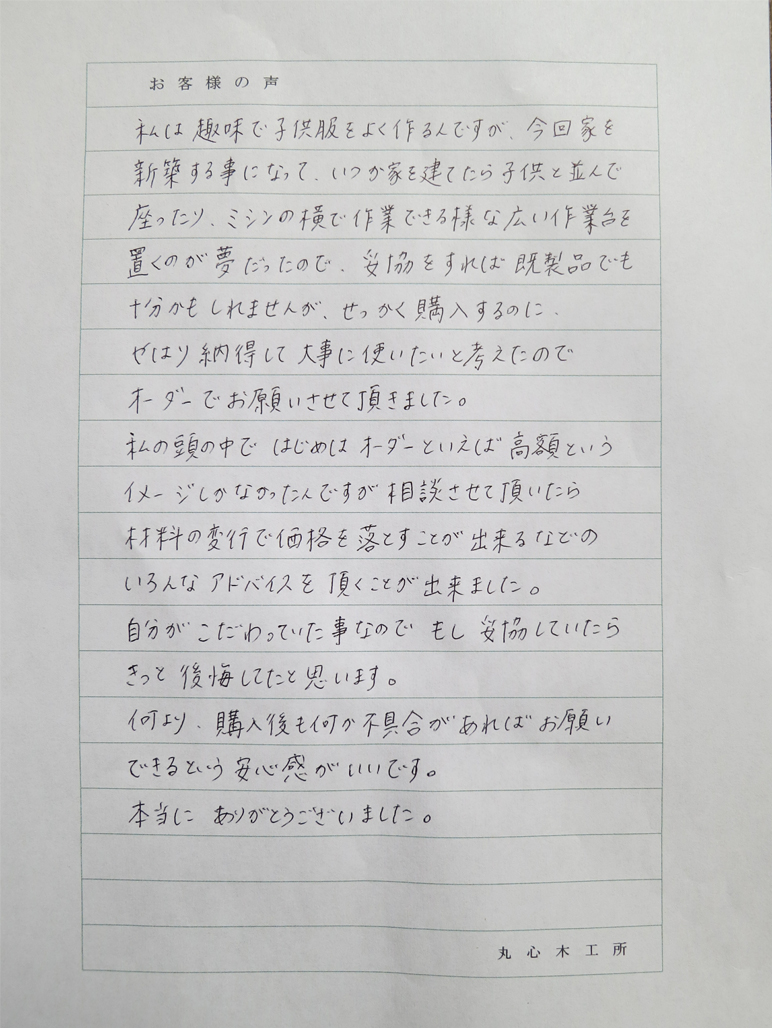 お客様の声
私は趣味で子供服をよく作るんですが、今回家を
新築する事になって、いつか家を建てたら子供と並んで
座ったり、ミシンの横で作業できる様な広い作業台を
置くのが夢だったので、妥協をすれば既製品でも
十分かもしれませんが、せっかく購入するのに、
やはり納得して大事に使いたいと考えたので
オーダーでお願いさせて頂きました。
私の頭の中ではじめはオーダーといえば高額という
イメージしかなかったんですが相談させて頂いたら
材料の変行で価格を落とすことが出来るなどの
いろんなアドバイスを頂くことが出来ました。
自分がこだわっていた事なのでもし妥協していたら
きっと後悔してたと思います。
何より、購入後も何か不具合があればお願い
できるという安心感がいいです。
本当にありがとうございました。
丸心木工所